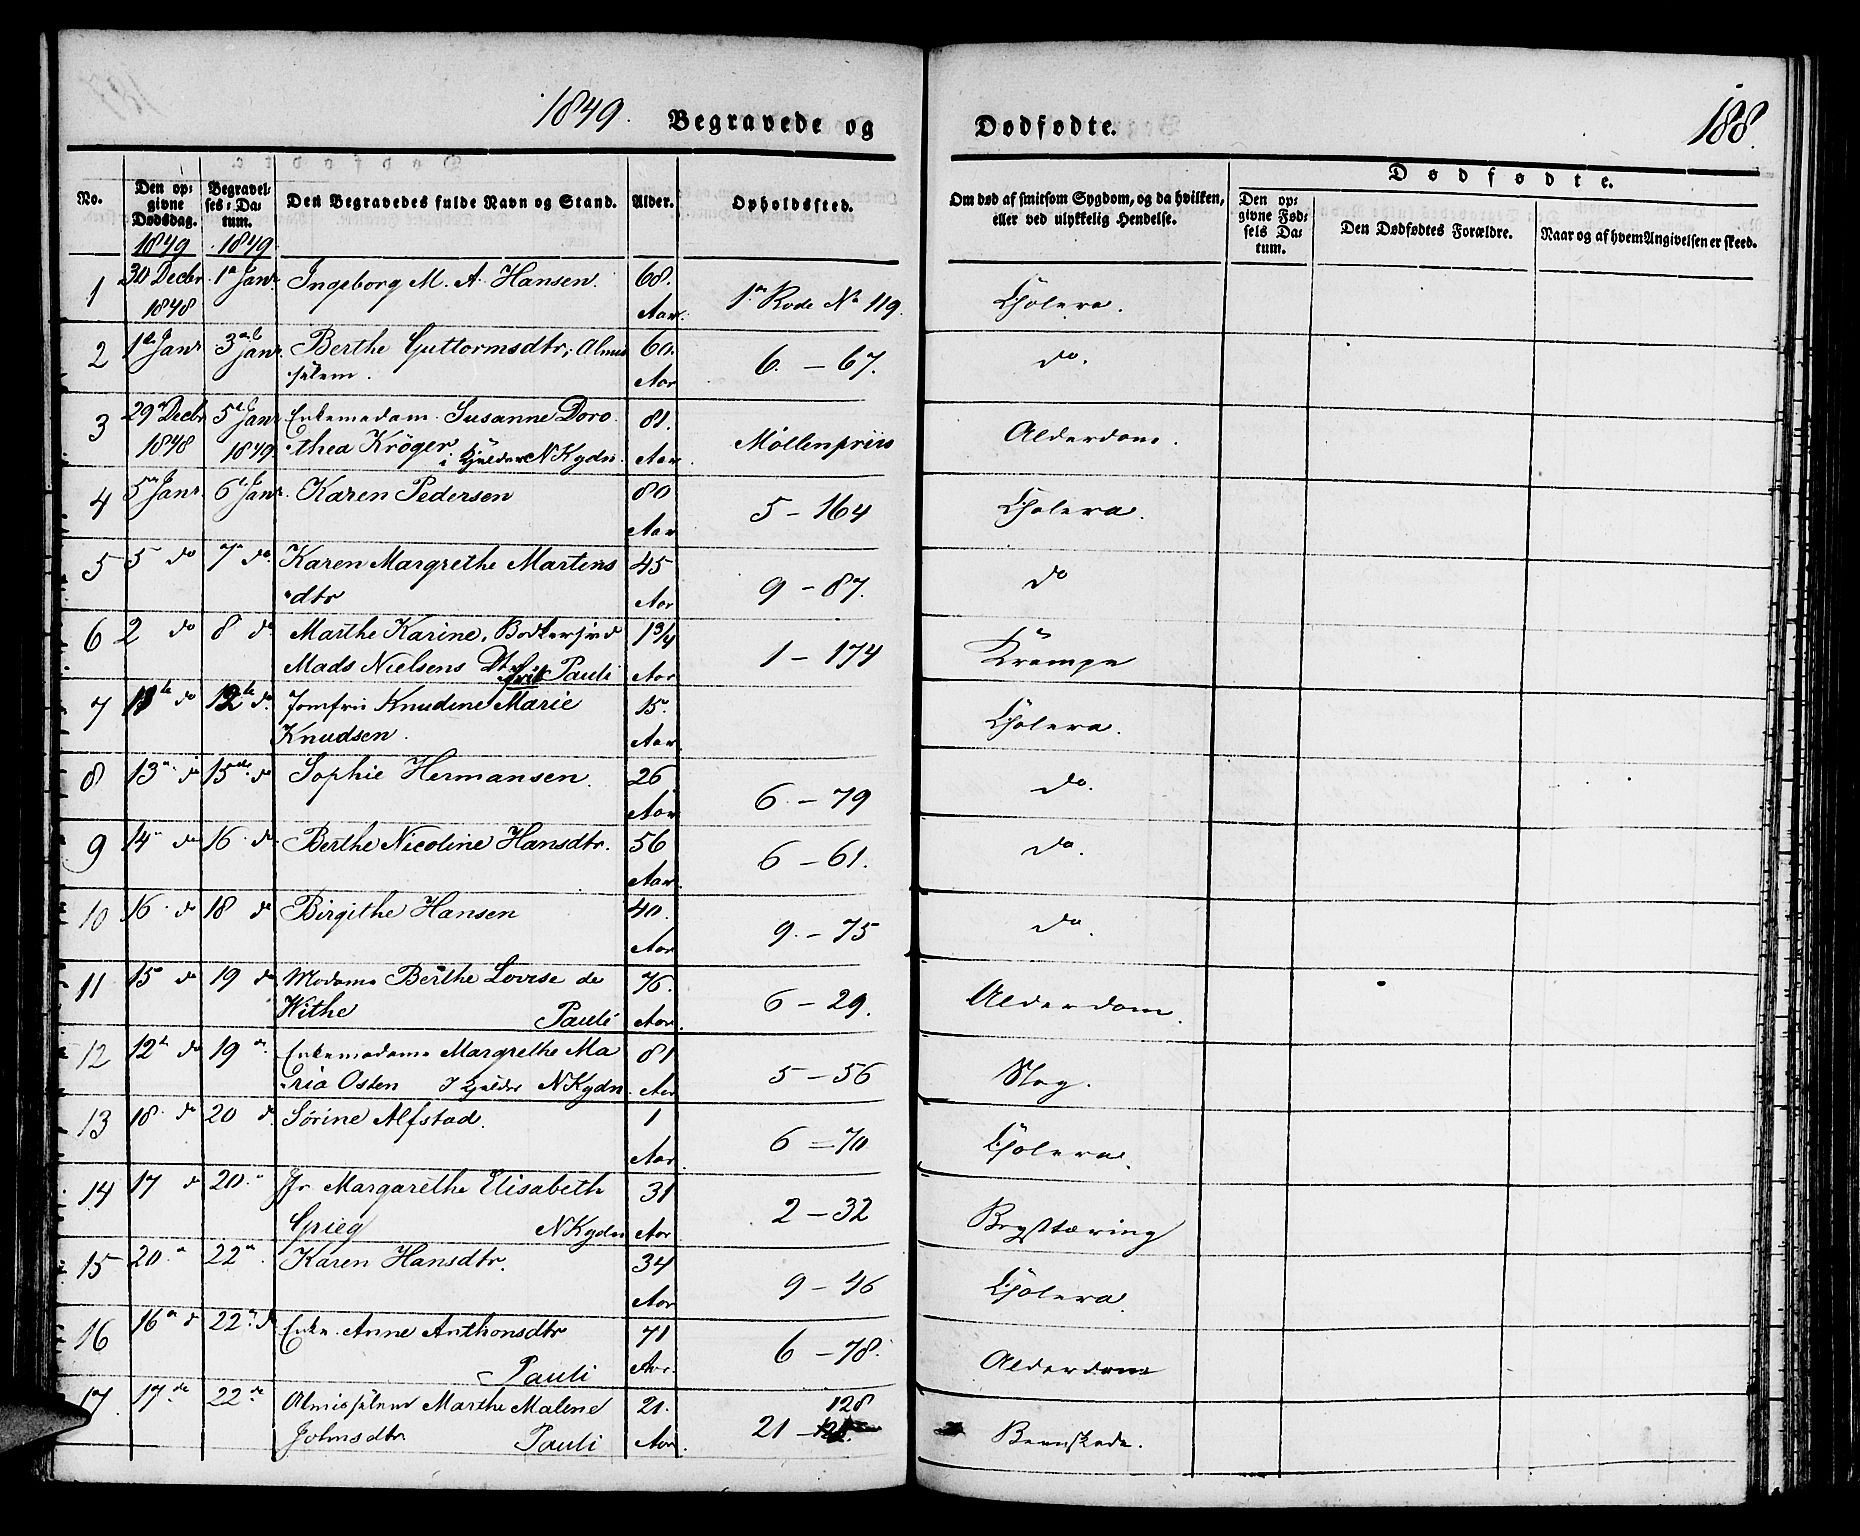 1849. Begravede og Dødfødte. 188.
No.
Den op-
givne
Dødsdag.
Begravel-
ses-Da-
tum.
Den Begravedes fulde Navn og Stand.
Alder.
Opholdssted.
Om død af smitsom Sygdom, og da hvilken,
eller ved ulykkelig Hendelse.
Dødfødte.
Den op-
givne Fød-
sels Da-
tum.
Den Dødfødtes Forældre.
Naar og af hvem Angivelsen er skeed.
1849 1849.
1 30 Decbr 1ste Janr Ingeborg M. A. Hansen. 68.
1848 Aar. 1ste Rode No 119. Cholera.
2 1ste Janr 3die Janr. Berthe Guttormsdtr, Almis 60.
sslem. Aar 6. – 67. do.
3 29de Decbr 5te Janr Enkemadam Susanne Doro 81.
1848 1849. thea Krøger i Kjelder NKgdn. Aar Møllenpriis Alderdom.
4 5te Janr. 6te Janr. Karen Pedersen 80
Aar 5 – 164 Cholera.
5 5 do 7de do. Karen Margrethe Martens 45
dtr Aar 9 – 87. do
6 2 do 8 do Marthe Karine, Bødkersvend 1 3/4
Mads Nielsens Dtr frit Pauli Aar 1 – 174 Krampe
7 11te do 12te do. Jomfru Knudine Marie 15.
Knudsen. Aar. Cholera.
8 13de do 15de do Sophie Hermansen. 26
Aar 6. – 79 do.
9 14de do 16. do Berthe Nicoline Hansdtr. 56
Aar. 6 – 61. do.
10 16. do 18 do Birgithe Hansen 40.
Aar 9. – 75 do.
11 15 do 19 do Madame Berthe Lovise de 76.
Withe Pauli Aar. 6 – 29. Alderdom.
12 12te do 19 do. Enkemadame Margrethe Ma 81
ria Osten I Kjelder NKgdn. Aar 5 – 56 Slag.
13 18. do 20 do. Sørine Alfstad. 1
Aar. 6 – 70 Cholera.
14 17 do 20. do Jfr Margarethe Elisabeth 31
Grieg NKgdn Aar 2 – 32 Brysttæring
15 20. do 22 do. Karen Hansdtr. 34
Aar 9 – 46 Cholera.
16 16de do 22de do Enke. Anne Anthonsdtr 71
Pauli Aar. 6 – 78. Alderdom
17. 17de 22de Almisslem Marthe Malene 21. 128
Johnsdtr Pauli Aar. 21 – Beenskade.